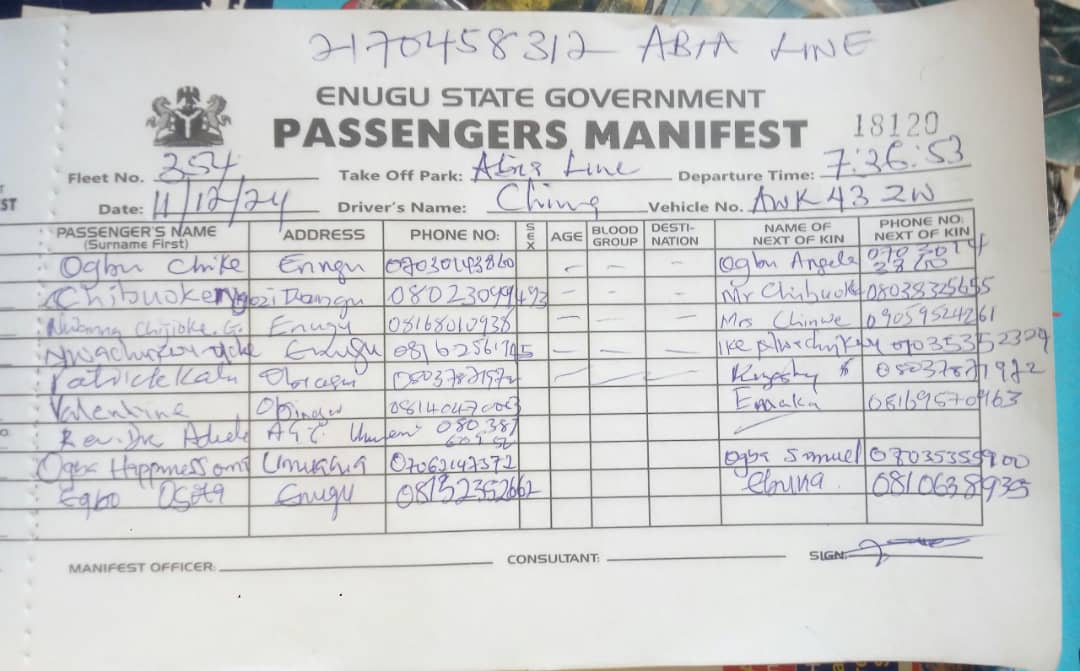 2170458312 ABIA LINE
ENUGU STATE GOVERNMENT
PASSENGERS MANIFEST 18120
Fleet No. 354 Take Off Park: Abia Line Departure Time: 7:36:53
ST
Date: 11/12/24 Driver's Name: Ching Vehicle No. AWK 43 ZW
PASSENGER'S NAME (Surname First) ADDRESS PHONE NO: SEX AGE BLOOD GROUP DESTI-NATION NAME OF NEXT OF KIN PHONE NO: NEXT OF KIN
Ogbu Chike Enugu 07030143860 - - - Ogbu Angela
Chibuoke Ngozi 08023099493 - - - Mr Chibuoke 08038325655
Chijioke. G. Enugu 08168010938 - - Mrs Chinwe 09059524261
Enugu 08162561745 - - - Ike 07035352329
Patrick Kalu 08037871972 - - - 08037871972
Valentine Emeka 08169570963
Rev. Dr
Ogba Happiness Umuahia 07062147372 Ogba Samuel 07035355900
Egbo Enugu 08132352662 Ebuka 0810638935
MANIFEST OFFICER: CONSULTANT: SIGN: